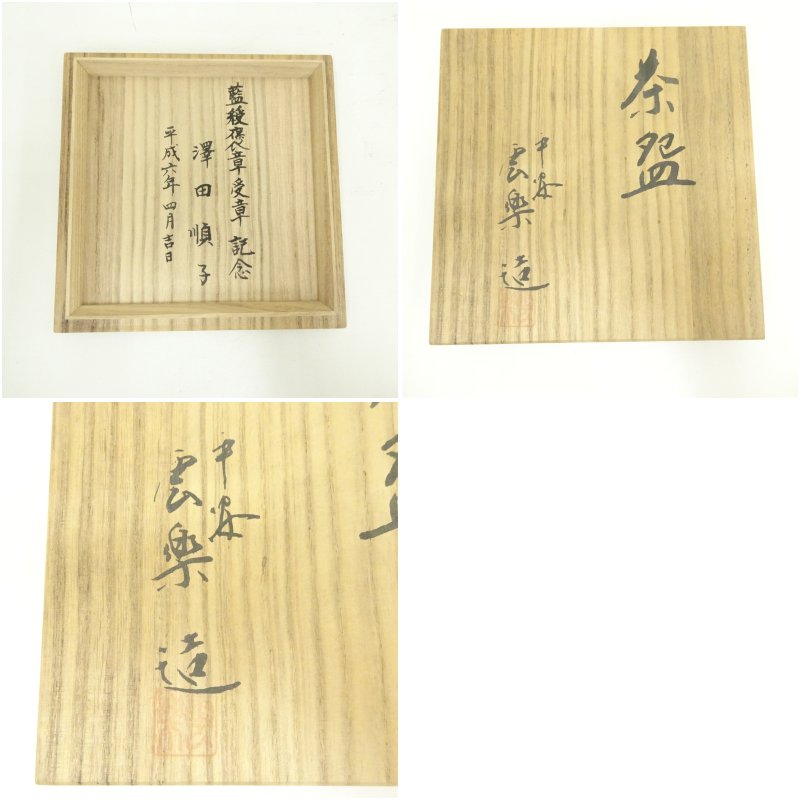 藍綬褒章受章 記念
澤田順子
平成六年四月吉日
茶盌
平安
雲楽 造
平安
雲楽 造